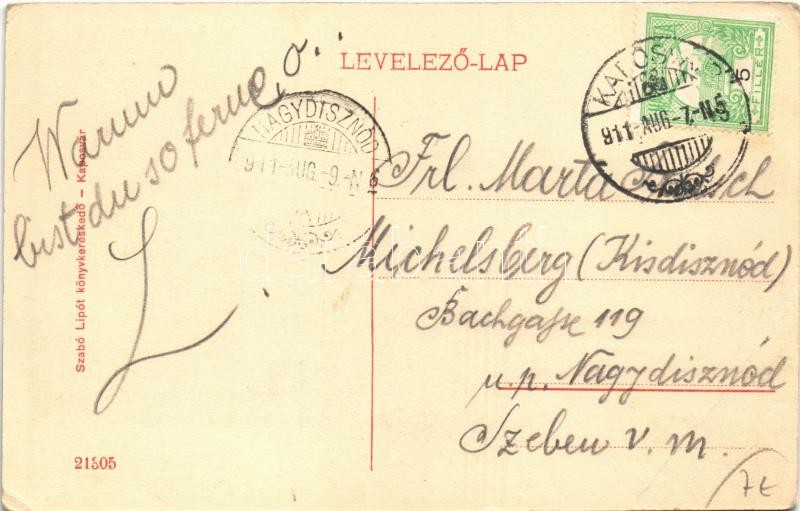 LEVELEZŐ-LAP
Warum
bist du so ferne, o..
L.
Frl. Marta
Michelsberg (Kisdisznód)
Bachgasse 119
u.p. Nagydisznód
Szeben v. m.
NAGYDISZNÓD
911-AUG.-9.-N6
911-AUG-7.-N5
FILLÉR
5
Szabó Lipót könyvkereskedő – Kaposvár
21305
7t